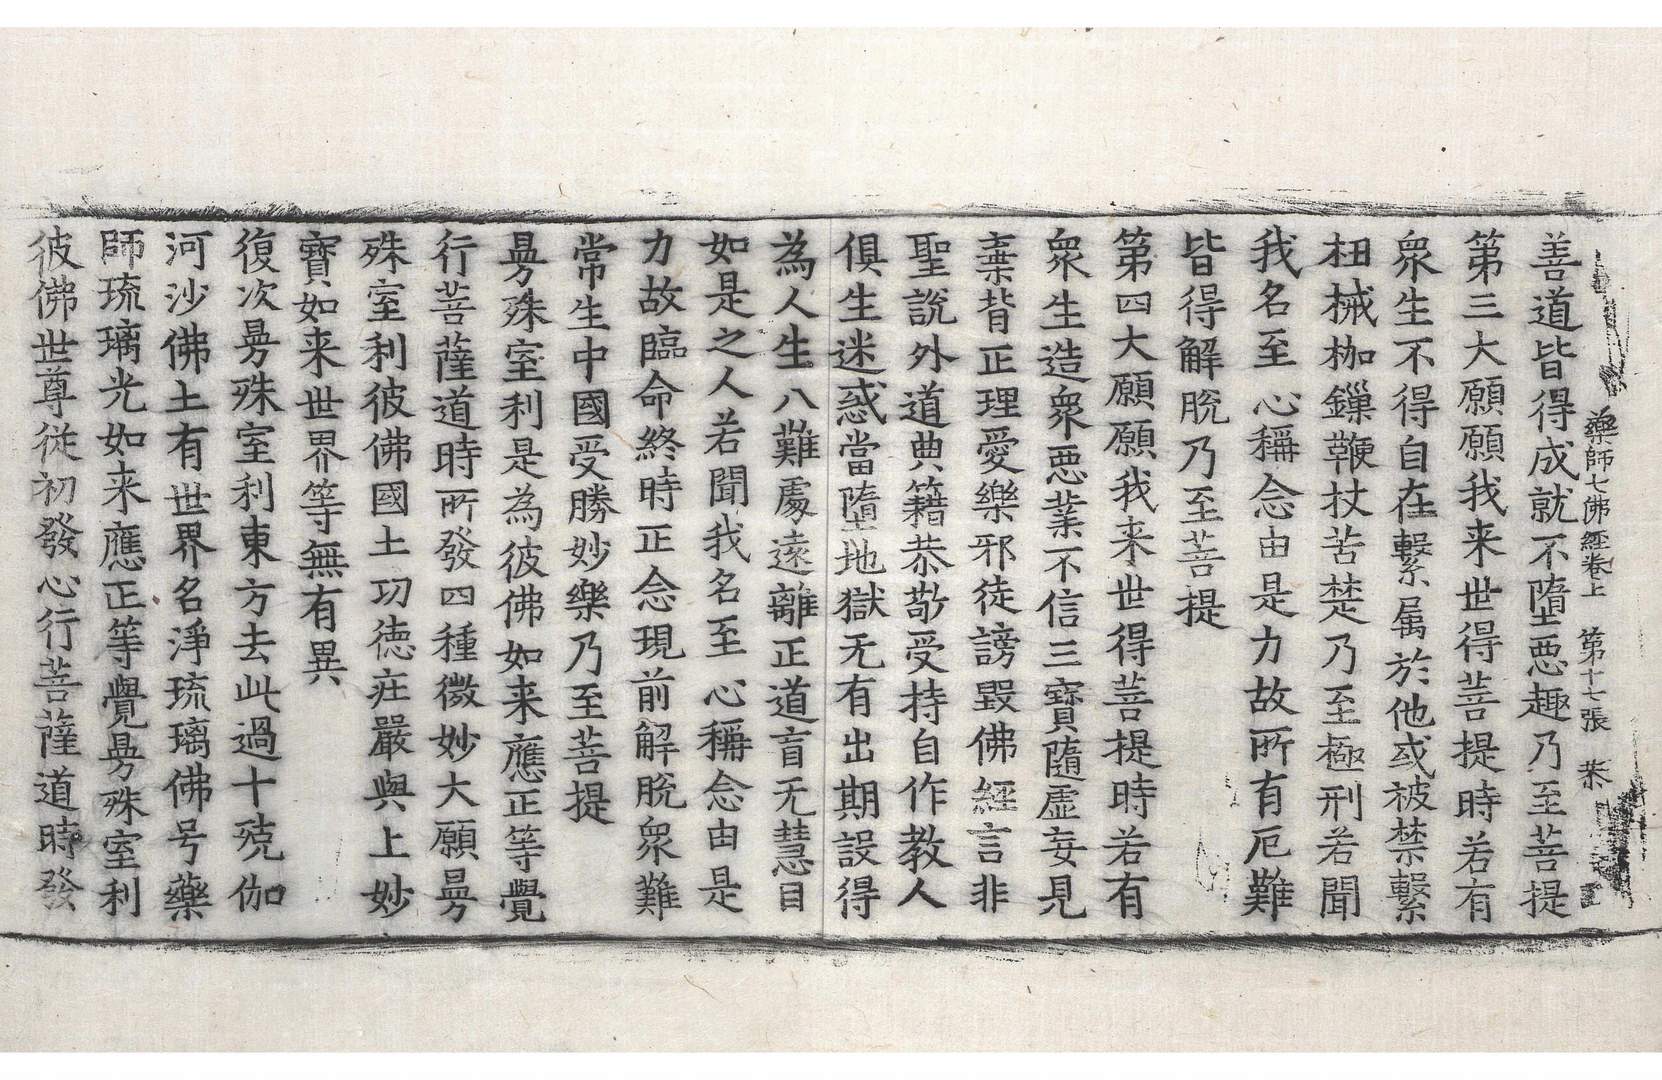 藥師七佛經卷上 第十七張 恭
善道皆得成就不墮惡趣乃至菩提
第三大願願我来世得菩提時若有
衆生不得自在繫属於他或被禁繫
杻械枷鏁鞭杖苦楚乃至極刑若聞
我名至心稱念由是力故所有厄難
皆得解脫乃至菩提
第四大願願我来世得菩提時若有
衆生造衆惡業不信三寶隨虛妄見
棄背正理愛樂邪徒謗毀佛經言非
聖說外道典籍恭敬受持自作教人
俱生迷惑當墮地獄无有出期設得
為人生八難處遠離正道盲无慧目
如是之人若聞我名至心稱念由是
力故臨命終時正念現前解脫衆難
常生中國受勝妙樂乃至菩提
曼殊室利是為彼佛如来應正等覺
行菩薩道時所發四種微妙大願曼
殊室利彼佛國土功徳庄嚴與上妙
寶如来世界等無有異
復次曼殊室利東方去此過十殑伽
河沙佛土有世界名淨琉璃佛号藥
師琉璃光如来應正等覺曼殊室利
彼佛世尊従初發心行菩薩道時發